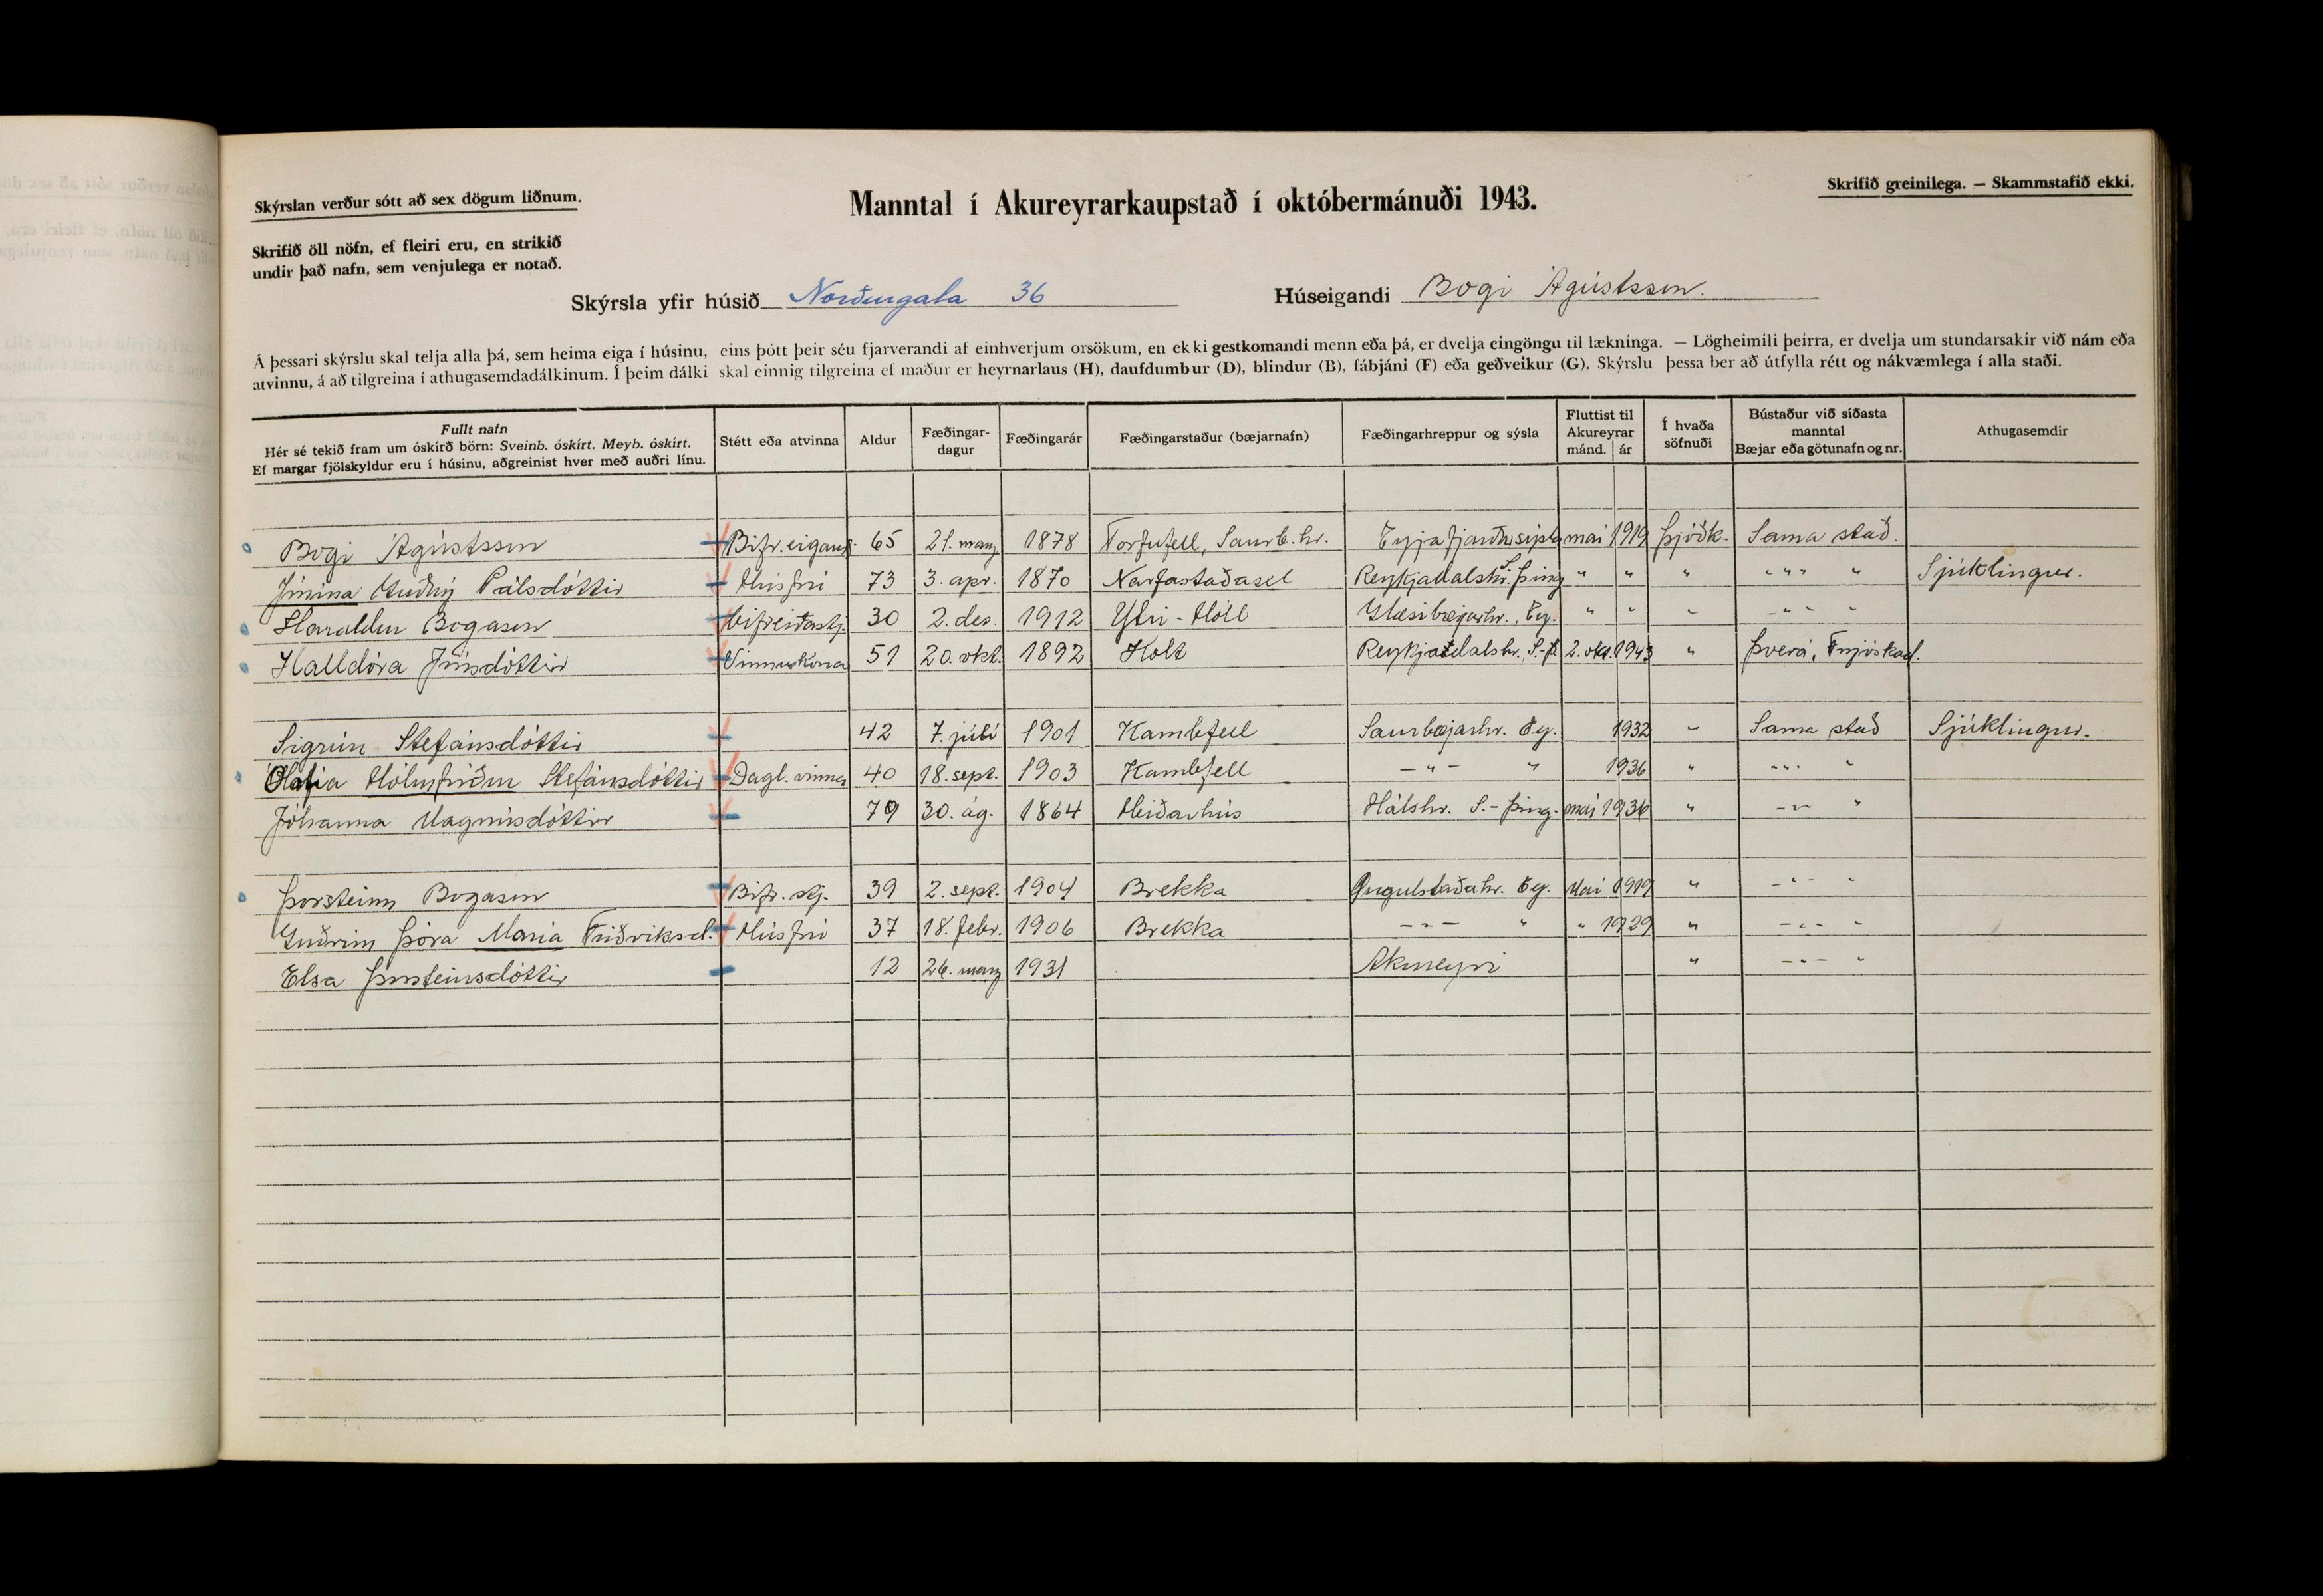 Skýrslan verður sótt að sex dögum liðnum.
Manntal í Akureyrarkaupstað í októbermánuði 1943.
Skrifið greinilega. — Skammstafið ekki.
Skrifið öll nöfn, ef fleiri eru, en strikið
undir það nafn, sem venjulega er notað.
Skýrsla yfir húsið Norðurgata 36 Húseigandi Bogi Ágústsson.
Á þessari skýrslu skal telja alla þá, sem heima eiga í húsinu, eins þótt þeir séu fjarverandi af einhverjum orsökum, en ekki gestkomandi menn eða þá, er dvelja eingöngu til lækninga. — Lögheimili þeirra, er dvelja um stundarsakir við nám eða
atvinnu, á að tilgreina í athugasemdadálkinum. Í þeim dálki skal einnig tilgreina ef maður er heyrnarlaus (H), daufdumbur (D), blindur (B), fábjáni (F) eða geðveikur (G). Skýrslu þessa ber að útfylla rétt og nákvæmlega í alla staði.
Fullt nafn
Hér sé tekið fram um óskírð börn: Sveinb. óskírt. Meyb. óskírt.
Ef margar fjölskyldur eru í húsinu, aðgreinist hver með auðri línu.
Stétt eða atvinna
Aldur
Fæðingar-
dagur
Fæðingarár
Fæðingarstaður (bæjarnafn)
Fæðingarhreppur og sýsla
Fluttist til
Akureyrar
mánd. ár
Í hvaða
söfnuði
Bústaður við síðasta
manntal
Bæjar eða götunafn og nr.
Athugasemdir
Bogi Ágústsson Bifr.eigand. 65 21. marz 1878 Torfufell, Saurb.hr. Eyjafjarðarsýsla maí 1919 Þjóðk. Sama stað.
Jónína Guðný Pálsdóttir Húsfrú 73 3. apr. 1870 Narfastaðasel Reykjadalshr. S. Þing " " " " " " " Sjúklingur.
Haraldur Bogason bifreiðastj. 30 2. des. 1912 Ytri-Hóll Glæsibæjarhr., Ey. " " " - " - "
Halldóra Jónsdóttir Vinnukona 51 20. okt. 1892 Holt Reykjadalshr., S.-Þ. 2. okt. 1943 " Þverá, Fnjóskad.
Sigrún Stefánsdóttir 42 7. júlí 1901 Kambfell Saurbæjarhr. Ey. 1932 " Sama stað Sjúklingur.
Ólafía Hólmfríður Stefánsdóttir Dagl. vinna 40 18. sept. 1903 Kambfell - " - " 1936 " - " - "
Jóhanna Magnúsdóttir 79 30. ág. 1864 Heiðarhús Hálshr. S.-Þing. maí 1936 " - " - "
Þorsteinn Bogason Bifr. stj. 39 2. sept. 1904 Brekka Öngulstaðahr. Ey. Maí 1919 " - " - "
Guðrún Þóra María Friðriksd. Húsfrú 37 18. febr. 1906 Brekka - " - " " 1929 " - " - "
Elsa Þorsteinsdóttir 12 26. marz 1931 Akureyri " - " - "